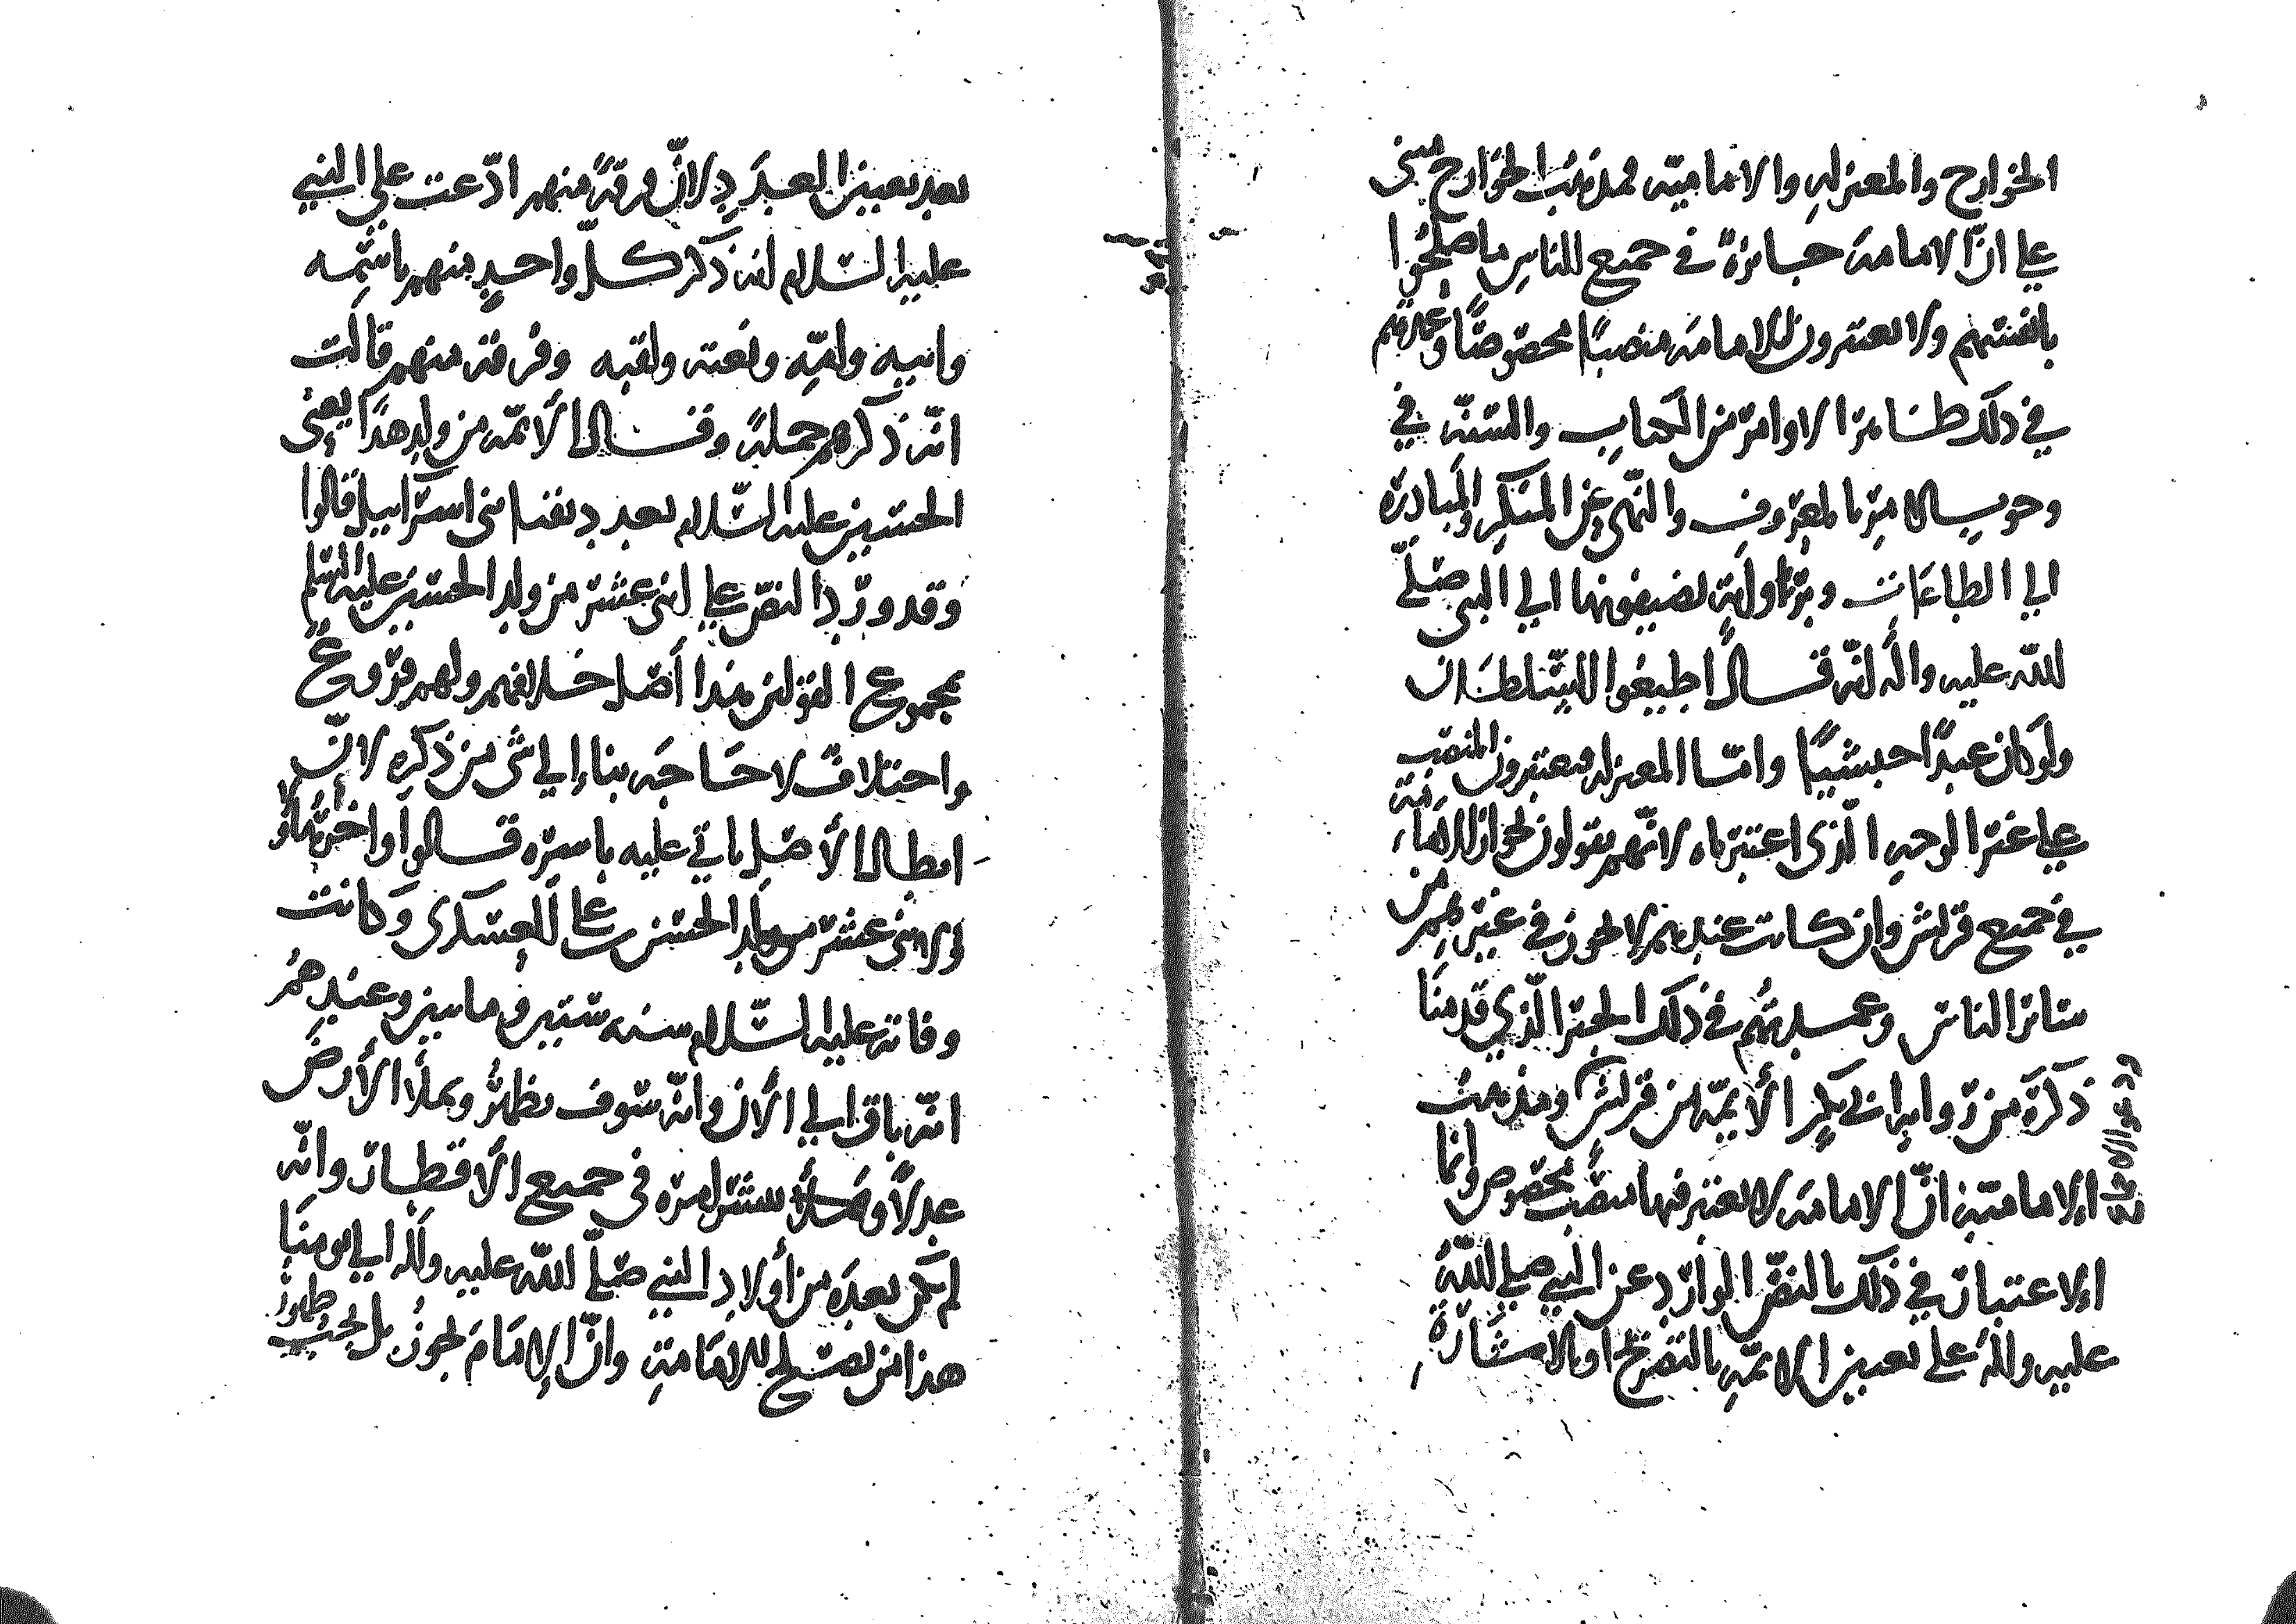 الخوارج والمعتزله والاماميّه فمذهب الخوارج مبنى
على انّ الامامة جائزة في جميع الناس ما صلحوا
بانفسهم ولا يعتبرون للامامة منصبًا مخصوصًا وعمدتهم
في ذلك ظاهر الاوامر من الكتاب والسنّة في
وجوب الامر بالمعروف والنّهى عن المنكر والمبادرة
الى الطاعات وبرواية يضيفونها الى النبى صلّى
اللّه عليه واله انّه قال اطيعوا السّلطان
ولو كان عبدًا حبشيًّا وامّا المعتزله فيعتبرون المنصب
على غير الوجه الّذى اعتبرناه لانّهم يقولون بجواز الامامة
في جميع قريش وان كانت عندهم لا تجوز في غيرهم من
سائر الناس وعمدتهم في ذلك الخبر الّذي قدمنا
ذكره من رواية ابى بكر الأئمّة من قريش ومذهب
الإماميّة انّ الامامة لا يعتبر فيها منصب مخصوص وانما
الاعتبار في ذلك بالنصّ الوارد عن النبي صلى اللّه
عليه واله على تعيين الائمّة بالتصريح او بالاشارة
بعد تعيين العدد لانّ فرقةً منهم ادّعت على النبي
عليه السّلام انه ذكر كلّ واحدٍ منهم باسمه
وابيه وامّه ونعته ولقبه وفرقة منهم قالت
انّه ذكرهم جملةً وقال الأئمّة من ولد هذا يعنى
الحسين عليه السّلام بعدد نقبا بنى اسرائيل قالوا
وقد ورد النصّ على اثنى عشر من ولد الحسين عليه السّلم
بمجموع القولين هذا أصل خلافهم ولهم فروع
واختلاف لا حاجة بنا إلى شى من ذكره لانّ
ابطال الأصل ياتي عليه باسره قالوا واخر هاولا
الاثنى عشر من ولد الحسن بن على العسكرى وكانت
وفاته عليه السّلام سنه ستين وماتين وعندهم
انّه باق الى الأن وانّه سوف يظهر ويملأ الأرض
عدلًا وسينشر امره في جميع الأقطار وانّه
لم يكن بعده من أولاد النبي صلّى اللّه عليه واله الى يومنا
هذا من يصلح للامامة وانّ الإمام يجوز بل يجب ظهور